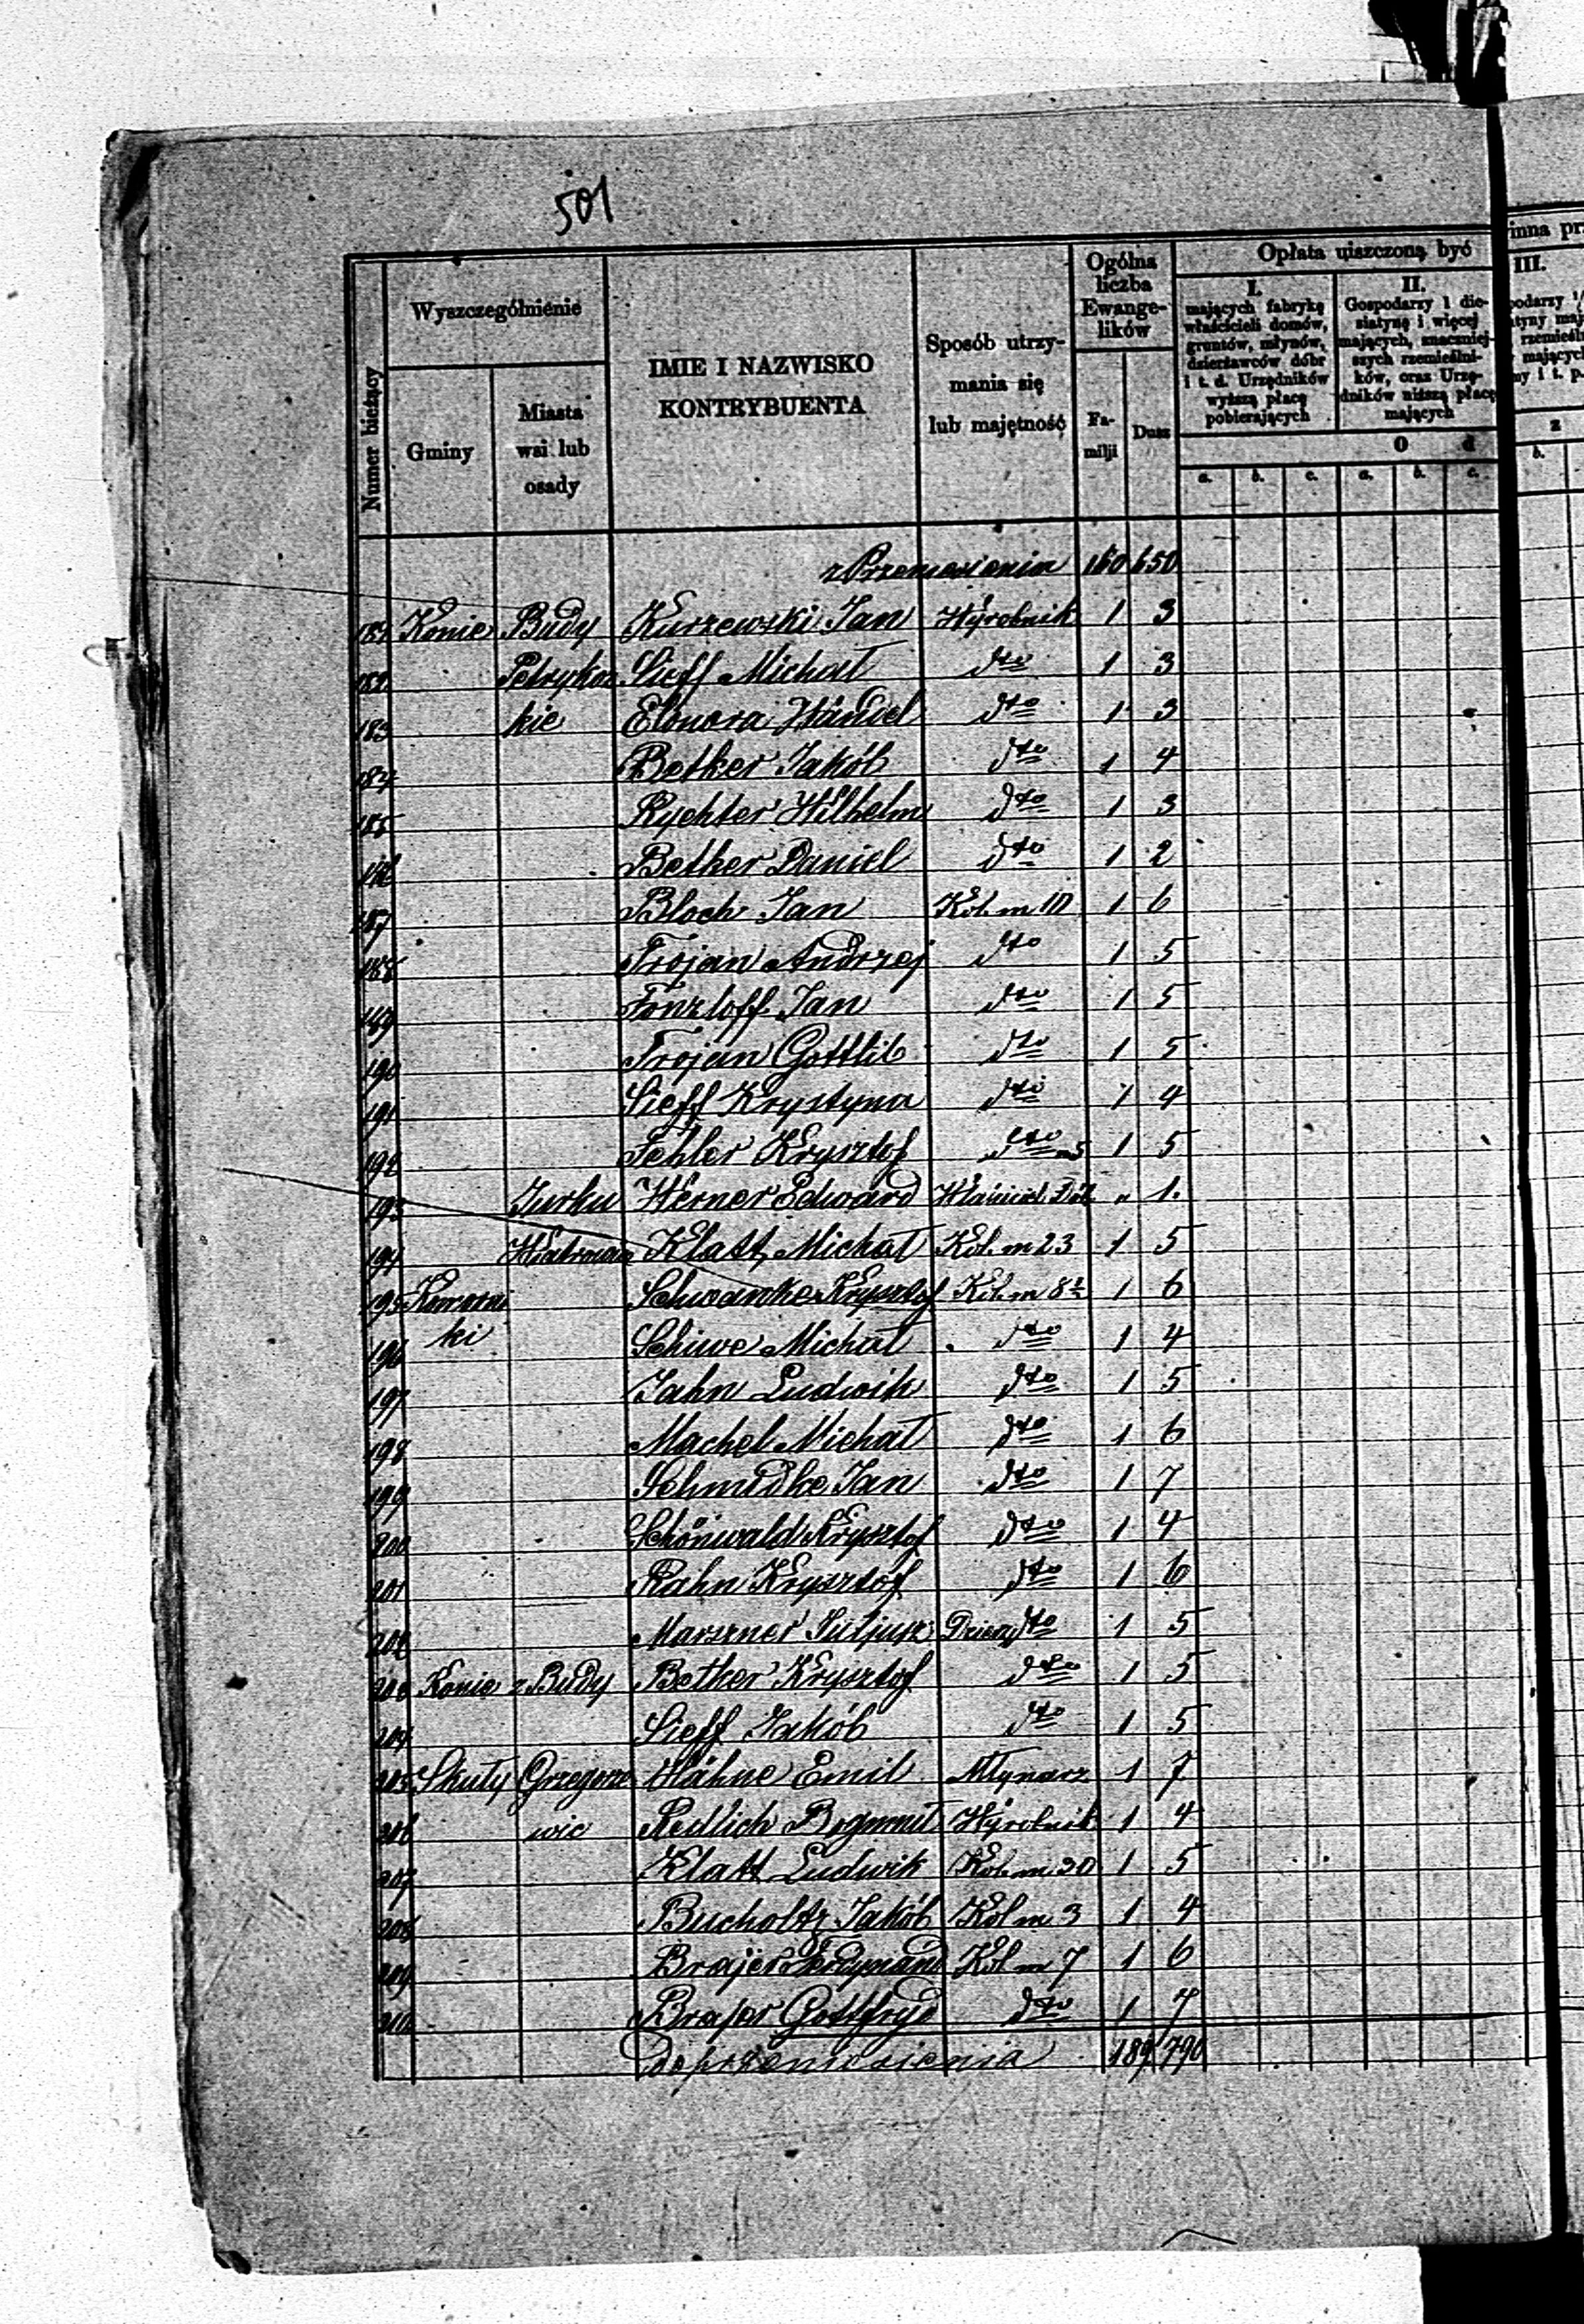 501
Numer bieżący
Wyszczególnienie
Gminy
Miasta wsi lub osady
IMIE I NAZWISKO
KONTRYBUENTA
Sposób utrzymania się lub majętność
Ogólna liczba Ewangelików
Familji
Dusz
Opłata uiszczoną być
inna prz
I.
mających fabrykę
właścicieli domów,
gruntów, młynów,
dzierżawców dóbr
i t. d. Urzędników
wyższą płacę
pobierających
II.
Gospodarzy 1 dziesiatynę i więcej
mających, znaczniejszych rzemieślników, oraz Urzędników niższą płacę
mających
III.
O d
z
a. b. c. a. b. c. b.
z Przeniesienia 160 650
181 Konie Budy Kurzewski Jan Wyrobnik 1 3
182 Petrykoz Sieff Michał dto 1 3
183 kie Elonora Händel dto 1 3
184 Betker Jakób dto 1 4
185 Rychter Wilhelm dto 1 3
186 Betker Daniel dto 1 2
187 Bloch Jan Kol. m 10 1 6
188 Trojan Andrzej dto 1 5
189 Fonzloff Jan dto 1 5
190 Trojan Gottlib dto 1 5
191 Sieff Krystyna dto 1 4
192 Fehler Krysztof dto m 5 1 5
193 Jurku Werner Edward Właściciel Dób " 1.
194 Klatt Michał Kol. m 23 1 5
195 Schwanke Krysztof Kol. m 8½ 1 6
196 ki Schiwe Michał dto 1 4
197 Jahn Ludwik dto 1 5
198 Machel Michał dto 1 6
199 Schmidke Jan dto 1 7
200 Schönwald Krysztof dto 1 4
201 Rahn Krysztof dto 1 6
202 Marszner Juljusz dto 1 5
203 Konie z Budy Betker Krysztof dto 1 5
204 Sieff Jakób dto 1 5
205 Skuły Grzegorze Hähne Emil Młynarz 1 7
206 wic Redlich Bogumił Wyrobnik 1 4
207 Klatt Ludwik Kol. m 20 1 5
208 Bucholtz Jakób Kol m 3 1 4
209 Brajer Ferdynand Kol m 7 1 6
210 Brajer Gottfryd dto 1 7
do przeniesienia 189 790